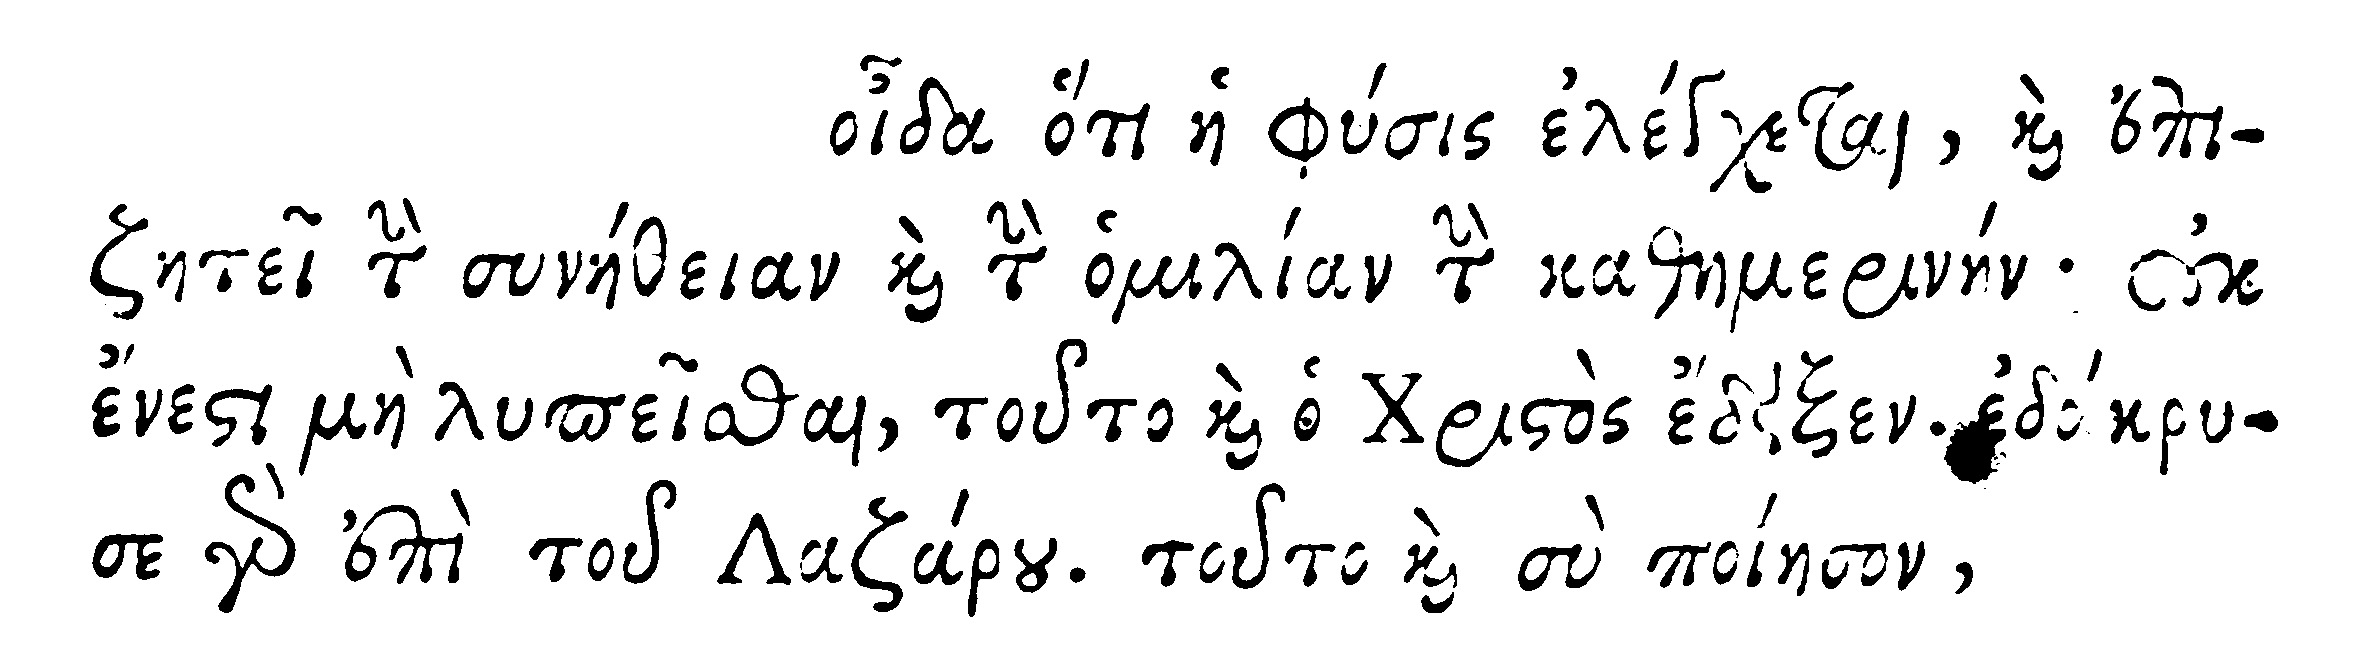 οἶδα ὅτι ἡ φύσις ἐλέγχεται, καὶ ἐπι-
ζητεῖ τὴν συνήθειαν καὶ τὴν ὁμιλίαν τὴν καθημερινήν· οὐκ
ἔνεστι μὴ λυπεῖσθαι, τοῦτο καὶ ὁ Χριστὸς ἔδειξεν. ἐδάκρυ-
σε γὰρ ἐπὶ τοῦ Λαζάρου. τοῦτο καὶ σὺ ποίησον,